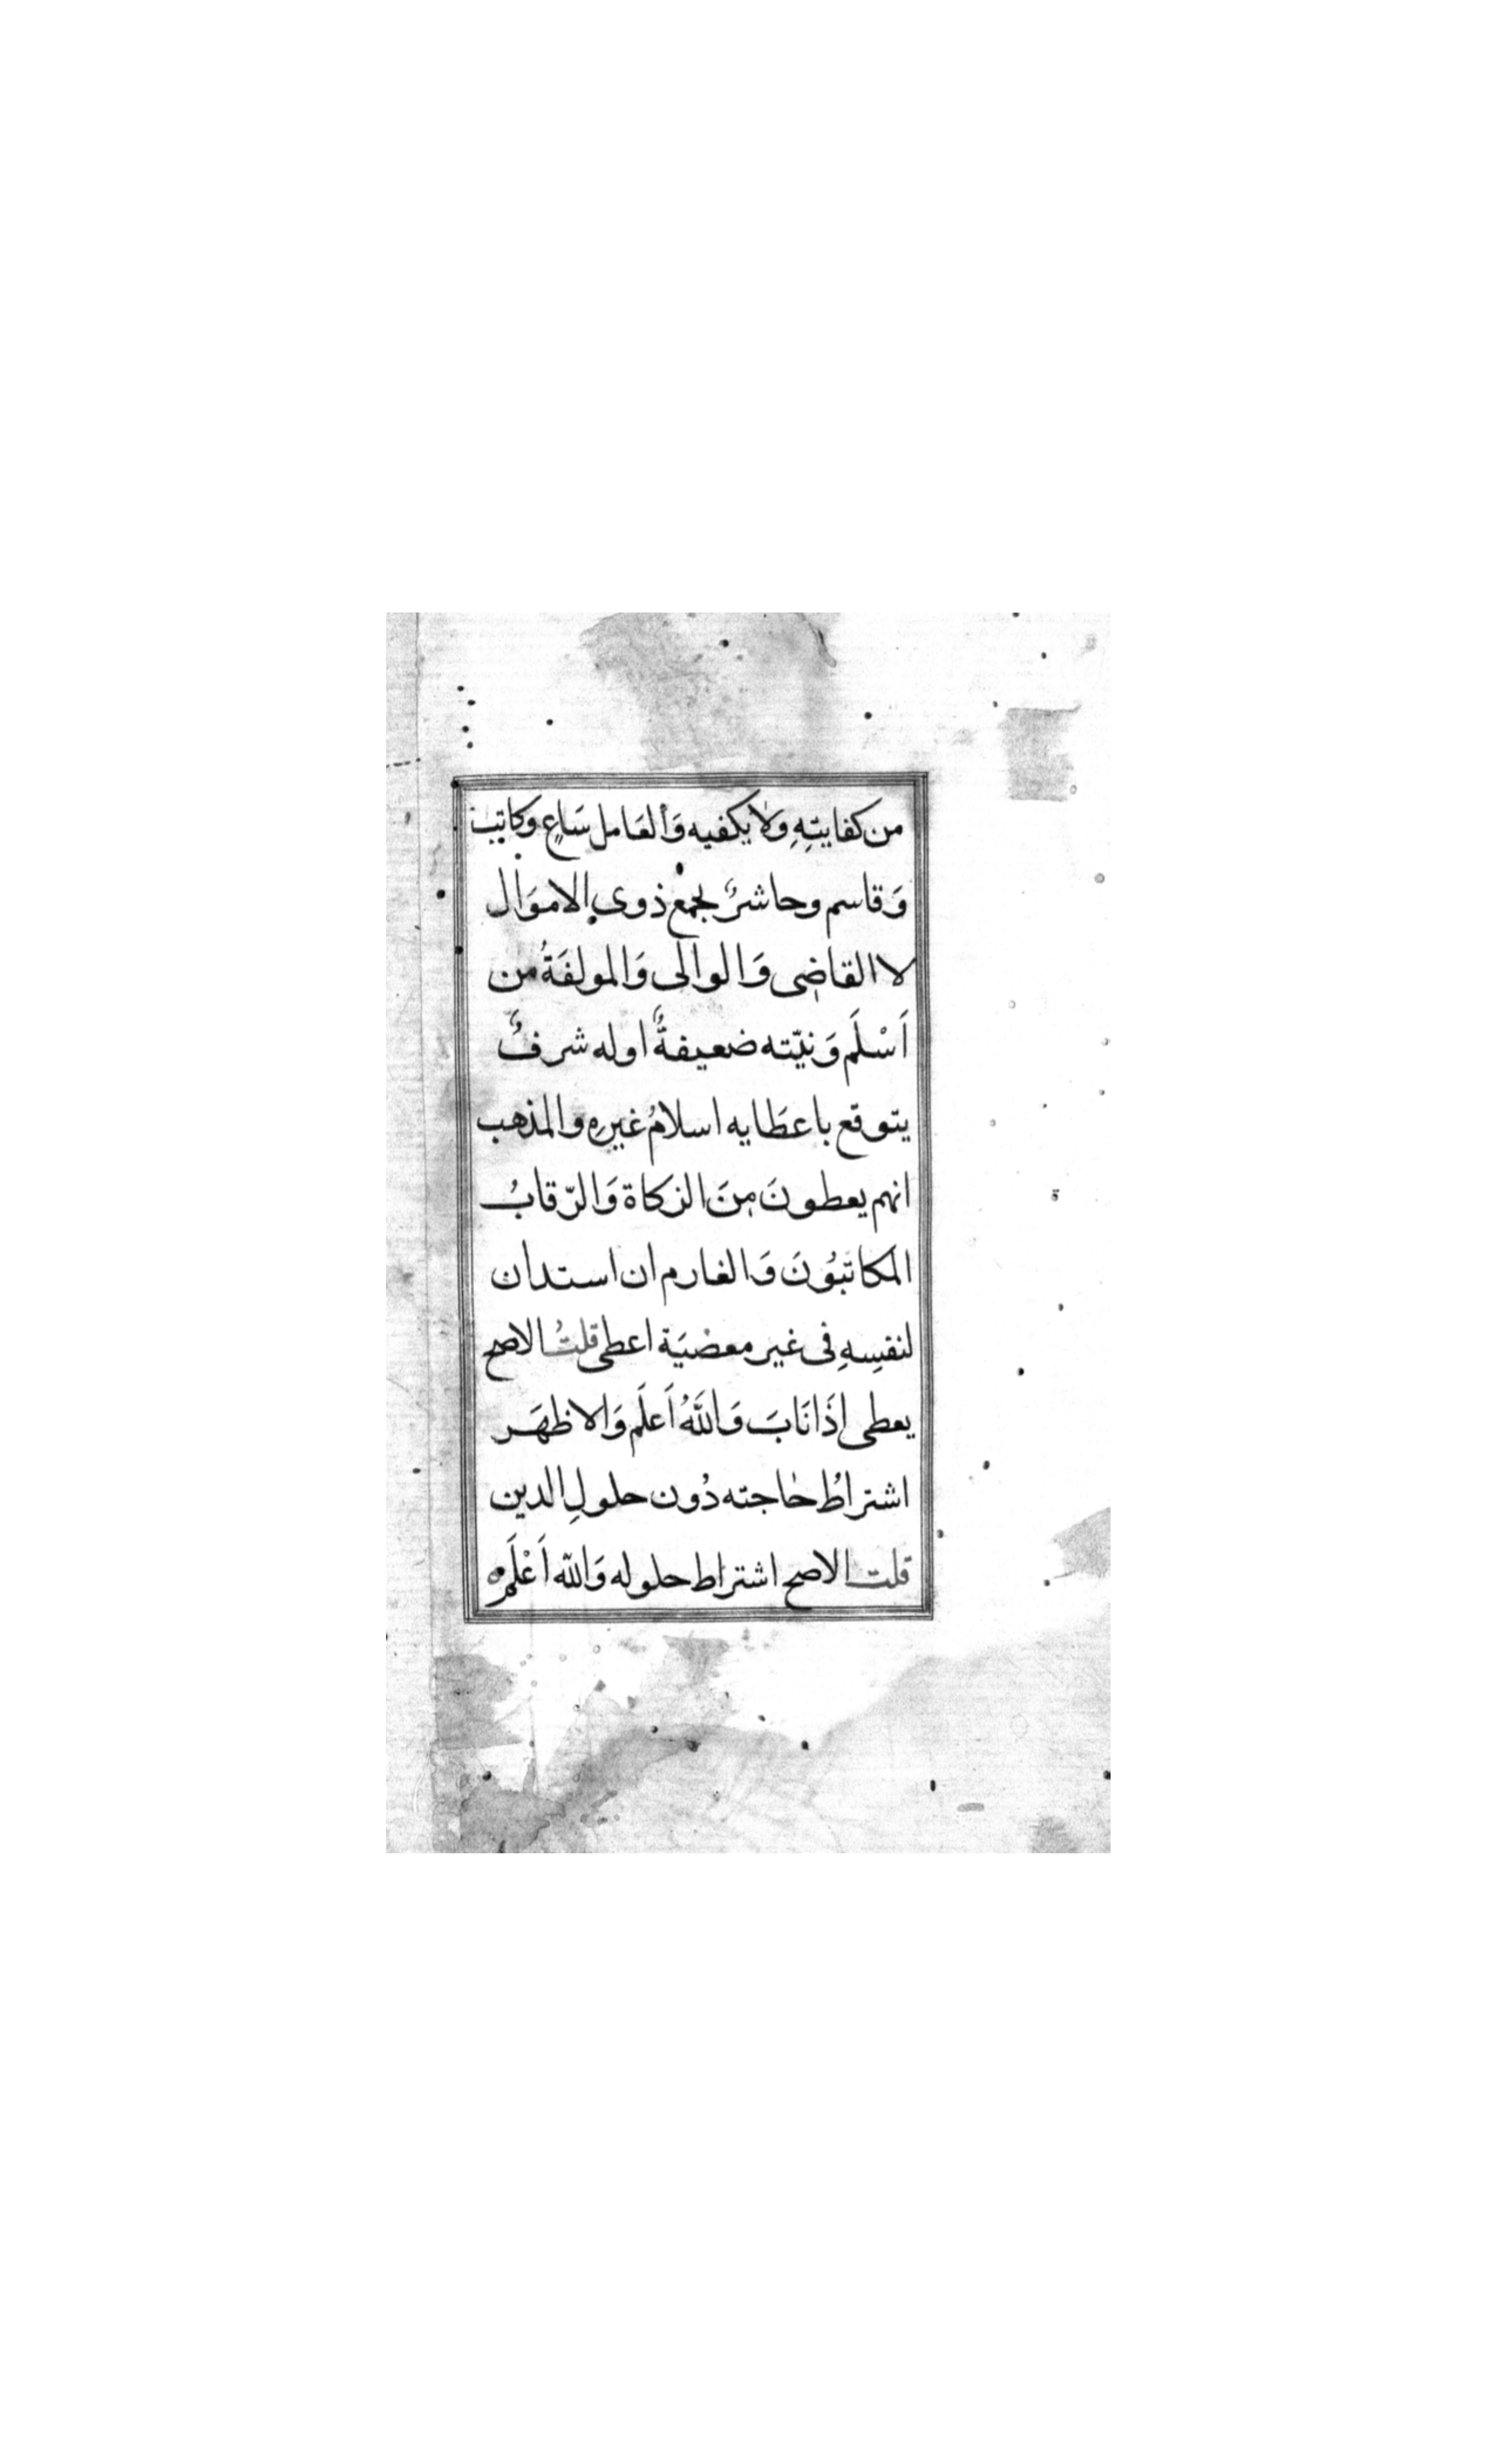 من كفايتِهِ ولا يكفيه وَالعَامل سَاعٍ وكاتب
وَقاسم وحاشرٌ لجمع ذوى الاموَال
لا القاضِى وَالوالى وَالمولفَةُ من
اَسْلَم وَنيّته ضعيفةٌ اوله شرفٌ
يتوقع باعطَايه اسلامُ غيرِهِ والمذهب
انهم يعطونَ مِنَ الزكاة وَالرّقابُ
المكاتَبُونَ وَالغارم ان استدان
لنفسِهِ فى غير معضيَة اعطى قلتُ الاصح
يعطى اذَا نَابَ وَاللَّهُ اَعلَم وَالاظهَر
اشتراطُ حَاجته دُون حلولِ الدين
قلت الاصح اشتراط حلوله وَاللّه اَعْلَم